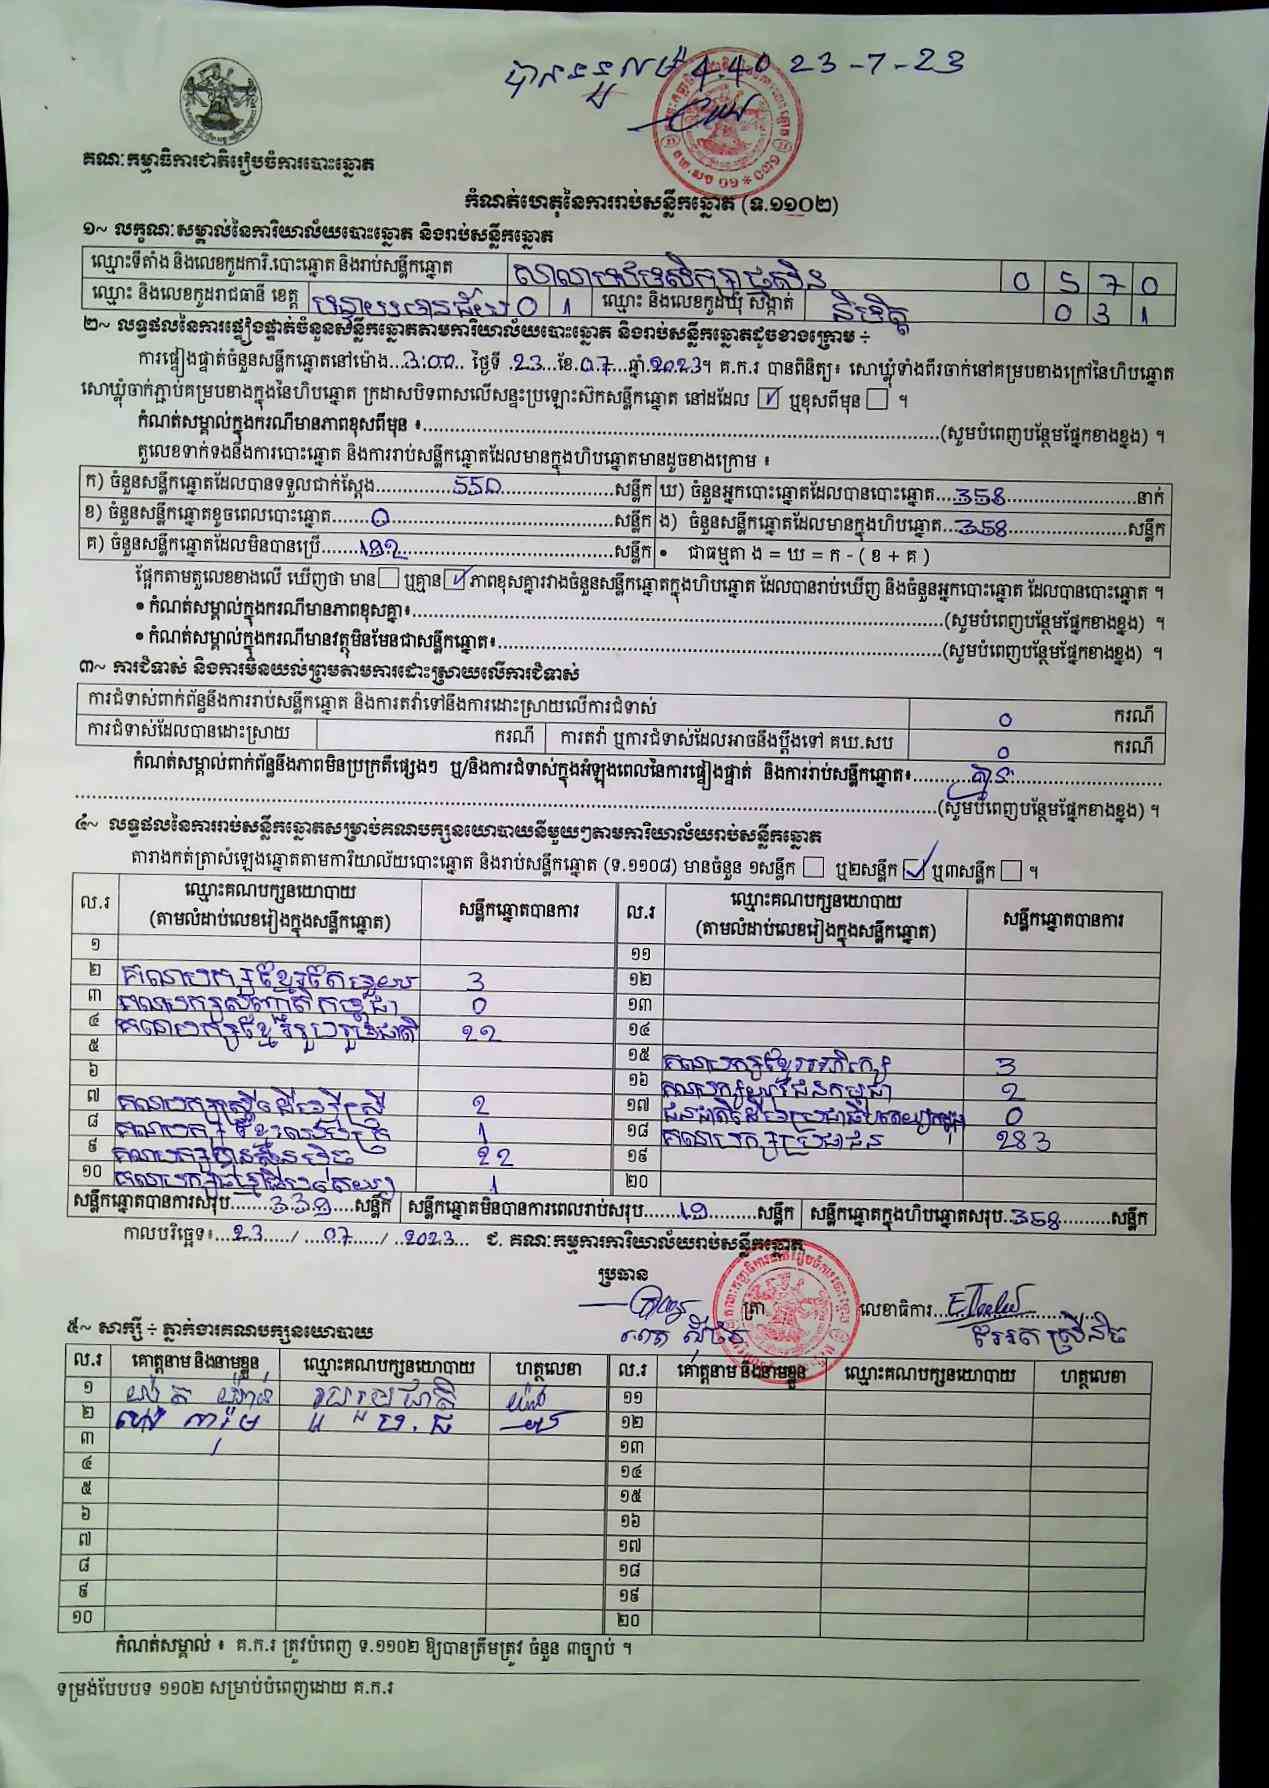 23-7-23
គណៈកម្មាធិការជាតិរៀបចំការបោះឆ្នោត
កំណត់ហេតុនៃការរាប់សន្លឹកឆ្នោត (ទ.១១០២)
១~ លក្ខណៈសម្គាល់នៃការិយាល័យបោះឆ្នោត និងរាប់សន្លឹកឆ្នោត
ឈ្មោះទីតាំង និងលេខកូដការិ.បោះឆ្នោត និងរាប់សន្លឹកឆ្នោត 0 5 7 0
ឈ្មោះ និងលេខកូដរាជធានី ខេត្ត បន្ទាយមានជ័យ 0 1 ឈ្មោះ និងលេខកូដឃុំ សង្កាត់ និមិត្ត 0 3 1
២~ លទ្ធផលនៃការផ្ទៀងផ្ទាត់ចំនួនសន្លឹកឆ្នោតតាមការិយាល័យបោះឆ្នោត និងរាប់សន្លឹកឆ្នោតដូចខាងក្រោម ÷
ការផ្ទៀងផ្ទាត់ចំនួនសន្លឹកឆ្នោតនៅម៉ោង...3:00.. ថ្ងៃទី .23...ខែ.07...ឆ្នាំ.2023។ គ.ក.រ បានពិនិត្យ៖ សោឃ្លុំទាំងពីរចាក់នៅគម្របខាងក្រៅនៃហិបឆ្នោត
សោឃ្លុំចាក់ភ្ជាប់គម្របខាងក្នុងនៃហិបឆ្នោត ក្រដាសបិទពាសលើសន្ទះប្រឡោះស៊កសន្លឹកឆ្នោត នៅដដែល ☑ ឬខុសពីមុន ☐ ។
កំណត់សម្គាល់ក្នុងករណីមានភាពខុសពីមុន ៖......(សូមបំពេញបន្ថែមផ្នែកខាងខ្នង) ។
តួលេខទាក់ទងនឹងការបោះឆ្នោត និងការរាប់សន្លឹកឆ្នោតដែលមានក្នុងហិបឆ្នោតមានដូចខាងក្រោម ៖
ក) ចំនួនសន្លឹកឆ្នោតដែលបានទទួលជាក់ស្តែង......550......សន្លឹក ឃ) ចំនួនអ្នកបោះឆ្នោតដែលបានបោះឆ្នោត...358......នាក់
ខ) ចំនួនសន្លឹកឆ្នោតខូចពេលបោះឆ្នោត......0......សន្លឹក ង) ចំនួនសន្លឹកឆ្នោតដែលមានក្នុងហិបឆ្នោត...358......សន្លឹក
គ) ចំនួនសន្លឹកឆ្នោតដែលមិនបានប្រើ......192......សន្លឹក • ជាធម្មតា ង = ឃ = ក - ( ខ + គ )
ផ្អែកតាមតួលេខខាងលើ ឃើញថា មាន ☐ ឬគ្មាន ☑ ភាពខុសគ្នារវាងចំនួនសន្លឹកឆ្នោតក្នុងហិបឆ្នោត ដែលបានរាប់ឃើញ និងចំនួនអ្នកបោះឆ្នោត ដែលបានបោះឆ្នោត ។
• កំណត់សម្គាល់ក្នុងករណីមានភាពខុសគ្នា៖......(សូមបំពេញបន្ថែមផ្នែកខាងខ្នង) ។
• កំណត់សម្គាល់ក្នុងករណីមានវត្ថុមិនមែនជាសន្លឹកឆ្នោត៖......(សូមបំពេញបន្ថែមផ្នែកខាងខ្នង) ។
៣~ ការជំទាស់ និងការមិនយល់ព្រមតាមការដោះស្រាយលើការជំទាស់
ការជំទាស់ពាក់ព័ន្ធនឹងការរាប់សន្លឹកឆ្នោត និងការតវ៉ាទៅនឹងការដោះស្រាយលើការជំទាស់ 0 ករណី
ការជំទាស់ដែលបានដោះស្រាយ ករណី ការតវ៉ា ឬការជំទាស់ដែលអាចនឹងប្តឹងទៅ គឃ.សប 0 ករណី
កំណត់សម្គាល់ពាក់ព័ន្ធនឹងភាពមិនប្រក្រតីផ្សេងៗ ឬ/និងការជំទាស់ក្នុងអំឡុងពេលនៃការផ្ទៀងផ្ទាត់ និងការរាប់សន្លឹកឆ្នោត៖......គ្មាន......
......(សូមបំពេញបន្ថែមផ្នែកខាងខ្នង) ។
៤~ លទ្ធផលនៃការរាប់សន្លឹកឆ្នោតសម្រាប់គណបក្សនយោបាយនីមួយៗតាមការិយាល័យរាប់សន្លឹកឆ្នោត
តារាងកត់ត្រាសំឡេងឆ្នោតតាមការិយាល័យបោះឆ្នោត និងរាប់សន្លឹកឆ្នោត (ទ.១១០៨) មានចំនួន ១សន្លឹក ☐ ឬ២សន្លឹក ☑ ឬ៣សន្លឹក ☐ ។
ល.រ ឈ្មោះគណបក្សនយោបាយ (តាមលំដាប់លេខរៀងក្នុងសន្លឹកឆ្នោត) សន្លឹកឆ្នោតបានការ ល.រ ឈ្មោះគណបក្សនយោបាយ (តាមលំដាប់លេខរៀងក្នុងសន្លឹកឆ្នោត) សន្លឹកឆ្នោតបានការ
១ ១១
២ គណបក្សខ្មែរតែមួយ 3 ១២
៣ គណបក្សសញ្ជាតិកម្ពុជា 0 ១៣
៤ គណបក្សខ្មែររួបរួមជាតិ 22 ១៤
៥ ១៥ 3
៦ ១៦ គណបក្សយុវជនកម្ពុជា 2
៧ គណបក្សស្ត្រីដើម្បីស្ត្រី 2 ១៧ 0
៨ 1 ១៨ គណបក្សប្រជាជន 283
៩ 22 ១៩
១០ គណបក្សធម្មាធិបតេយ្យ 1 ២០
សន្លឹកឆ្នោតបានការសរុប......339....សន្លឹក សន្លឹកឆ្នោតមិនបានការពេលរាប់សរុប......19......សន្លឹក សន្លឹកឆ្នោតក្នុងហិបឆ្នោតសរុប..358......សន្លឹក
កាលបរិច្ឆេទ៖...23...../ ...07...../ ..2023... ជ. គណៈកម្មការការិយាល័យរាប់សន្លឹកឆ្នោត
ប្រធាន
ត្រា លេខាធិការ
៥~ សាក្សី ÷ ភ្នាក់ងារគណបក្សនយោបាយ
ល.រ គោត្តនាម និងនាមខ្លួន ឈ្មោះគណបក្សនយោបាយ ហត្ថលេខា ល.រ គោត្តនាម និងនាមខ្លួន ឈ្មោះគណបក្សនយោបាយ ហត្ថលេខា
១ រួបរួមជាតិ ១១
២ ១២
៣ ១៣
៤ ១៤
៥ ១៥
៦ ១៦
៧ ១៧
៨ ១៨
៩ ១៩
១០ ២០
កំណត់សម្គាល់ ៖ គ.ក.រ ត្រូវបំពេញ ទ.១១០២ ឱ្យបានត្រឹមត្រូវ ចំនួន ៣ច្បាប់ ។
ទម្រង់បែបបទ ១១០២ សម្រាប់បំពេញដោយ គ.ក.រ